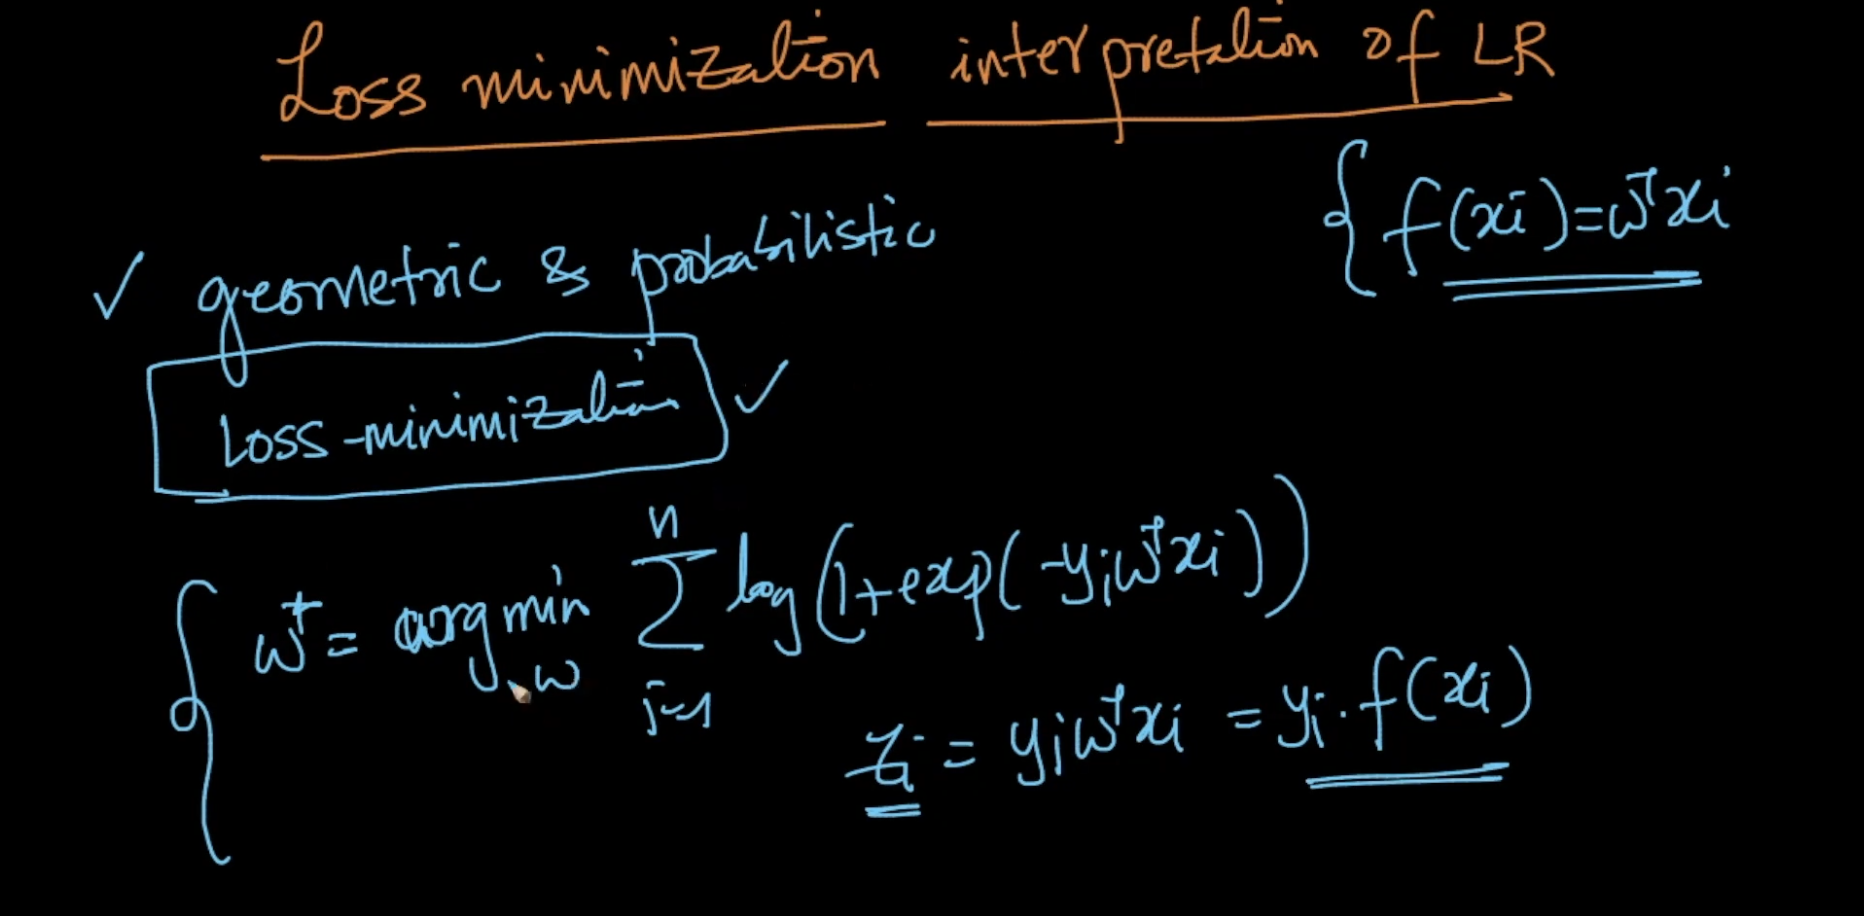 Loss minimization interpretation of LR
{ f(xi) = wᵀxi
✓ geometric & probabilistic
Loss-minimization ✓
{ w* = arg min_w Σ_{i=1}^{n} log(1+exp(-yiwᵀxi))
zi = yiwᵀxi = yi.f(xi)